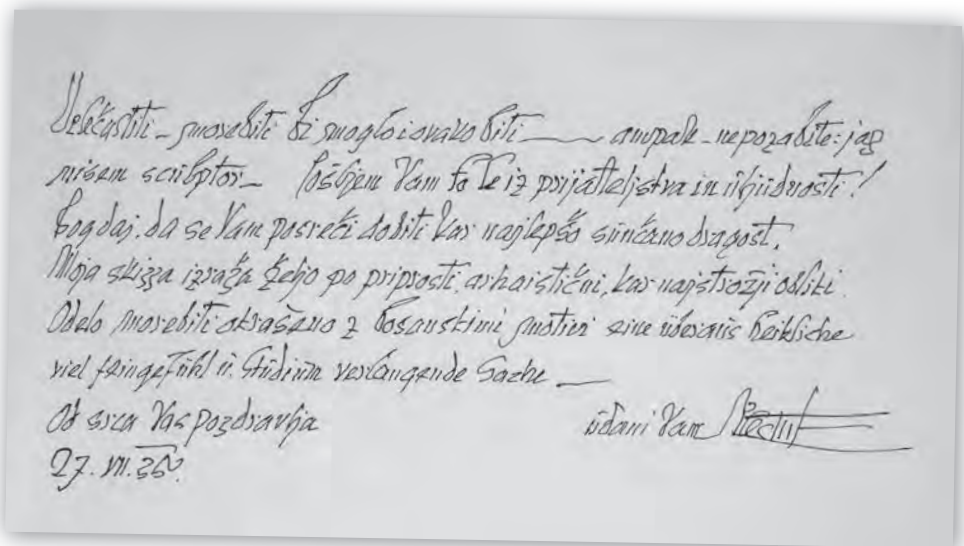 Velečastiti – morebiti bi moglo i ovako biti —— ampak – nepozabite: jaz
nisem sculptor – Pošljem Vam to le iz prijateljstva in uljudnosti!
Bog daj, da se Vam posreči dobiti kar najlepšo sunčano dragost.
Moja skizza izraža željo po priprosti, arhaistični, kar najstrožji obliki.
Odelo morebiti okrašeno z bosanskimi motivi eine überaus heikliche
viel feingefühl u. Studium verlangende Sache —
Od srca Vas pozdravlja udani Vam
27. VII. 35.